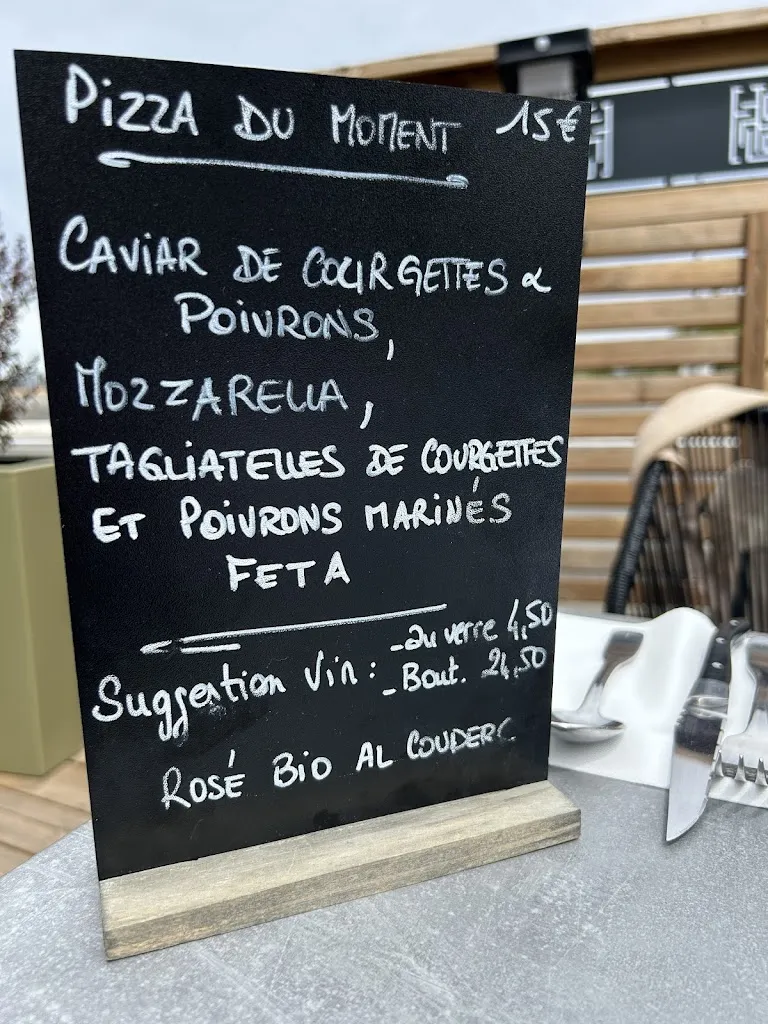 PIZZA DU MOMENT 15€
CAVIAR DE COURGETTES &
POIVRONS,
MOZZARELLA,
TAGLIATELLES DE COURGETTES
ET POIVRONS MARINÉS
FETA
Suggestion Vin : - au verre 4,50
- Bout. 24,50
ROSÉ BIO AL COUDERC